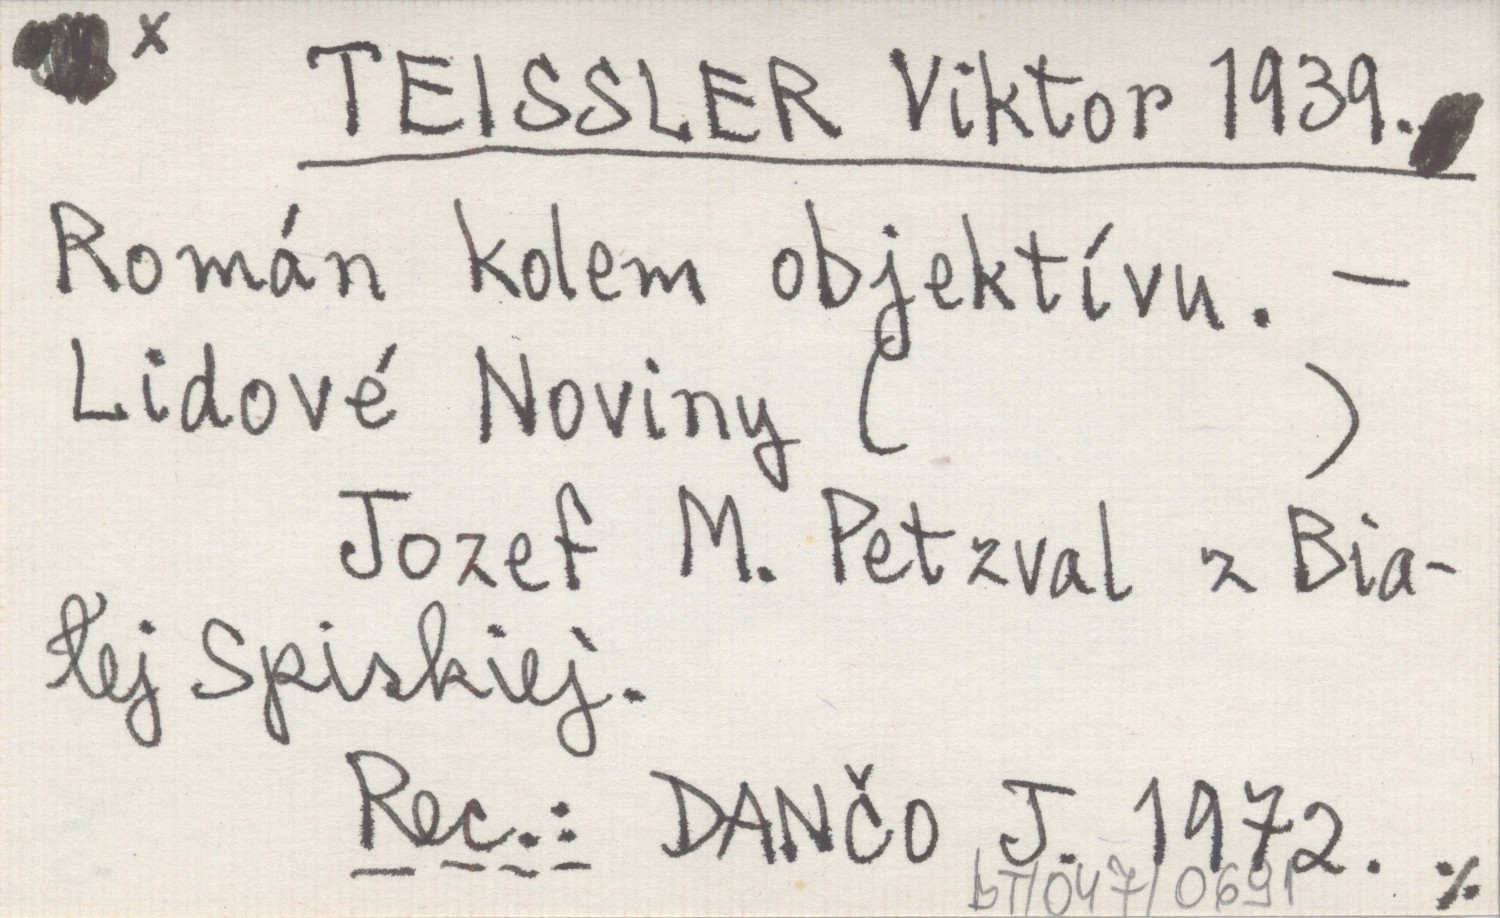 x TEISSLER Viktor 1939.
Román kolem objektívu. —
Lidové Noviny ( )
Jozef M. Petzval z Bia-
łej Spiskiej.
Rec.: DANČO J. 1972. ·/.
bT/047/0691